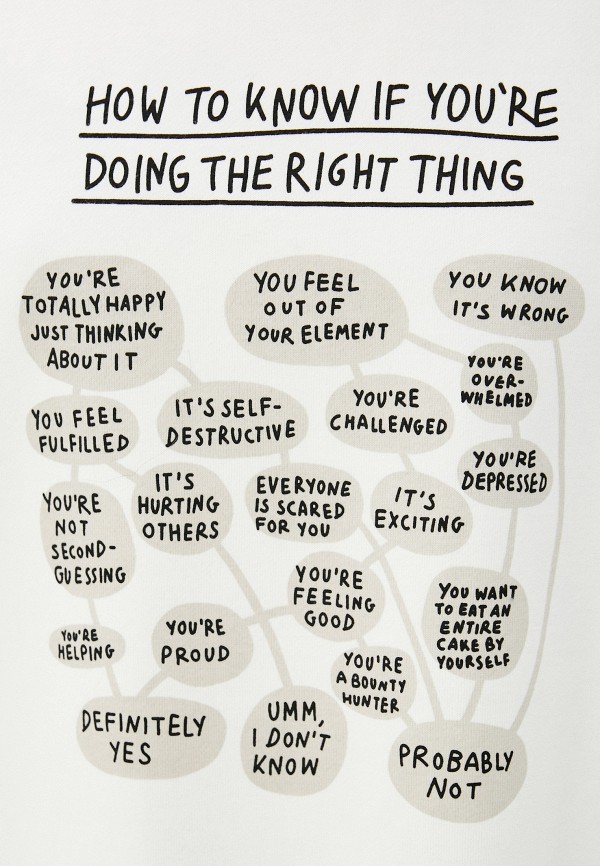 HOW TO KNOW IF YOU'RE
DOING THE RIGHT THING
YOU'RE
TOTALLY HAPPY
JUST THINKING
ABOUT IT
YOU FEEL
OUT OF
YOUR ELEMENT
YOU KNOW
IT'S WRONG
YOU'RE
OVER-
WHELMED
YOU FEEL
FULFILLED
IT'S SELF-
DESTRUCTIVE
YOU'RE
CHALLENGED
YOU'RE
DEPRESSED
YOU'RE
NOT
SECOND-
GUESSING
IT'S
HURTING
OTHERS
EVERYONE
IS SCARED
FOR YOU
IT'S
EXCITING
YOU'RE
FEELING
GOOD
YOU WANT
TO EAT AN
ENTIRE
CAKE BY
YOURSELF
YOU'RE
HELPING
YOU'RE
PROUD
YOU'RE
A BOUNTY
HUNTER
DEFINITELY
YES
UMM,
I DON'T
KNOW
PROBABLY
NOT